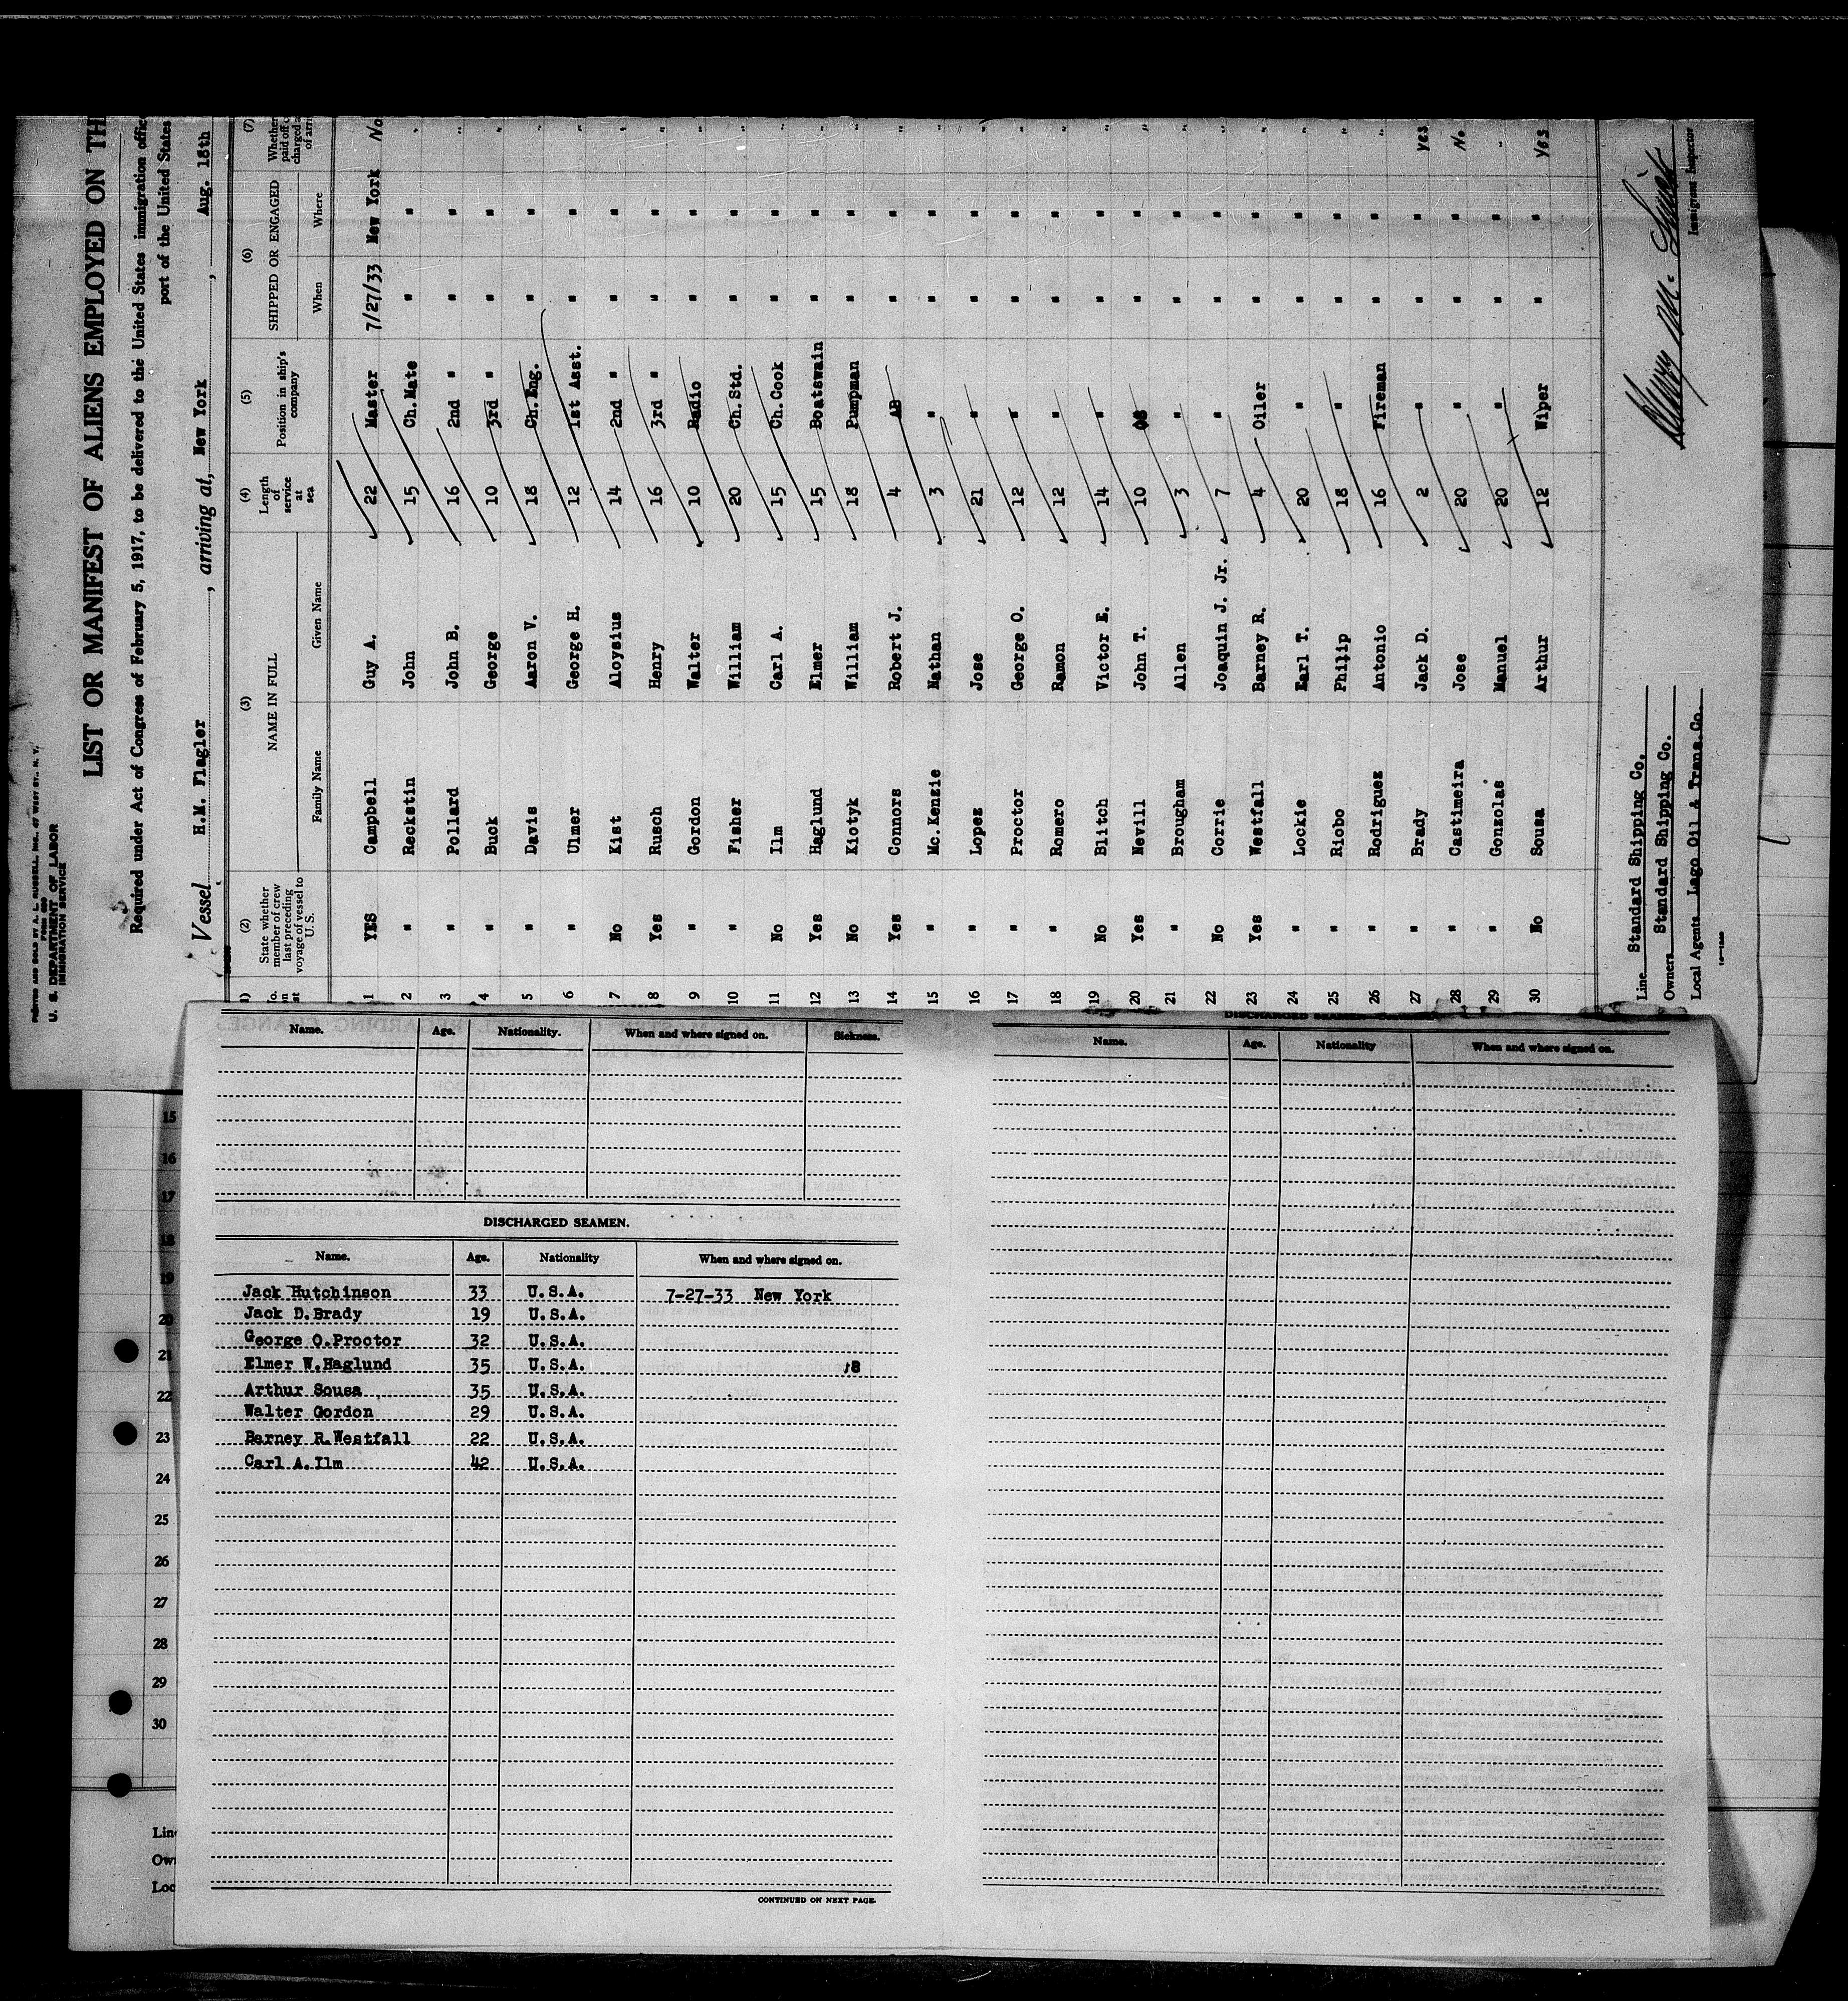 PRINTED AND SOLD BY A. L. RUSSELL, INC., 47 WEST ST., N. Y.
FORM 680
U. S. DEPARTMENT OF LABOR
IMMIGRATION SERVICE
LIST OR MANIFEST OF ALIENS EMPLOYED ON TH
Required under Act of Congress of February 5, 1917, to be delivered to the United States immigration offic
port of the United States
Vessel H.M. Flagler, arriving at, New York, Aug. 18th
(2) (3) (4) (5) (6) (7)
State whether member of crew last preceding voyage of vessel to U.S. NAME IN FULL Length of service at sea Position in ship's company SHIPPED OR ENGAGED Whether paid off
Family Name Given Name When Where
1 YES Campbell Guy A. 22 Master 7/27/33 New York No
2 " Reckstin John 15 Ch. Mate " " "
3 " Pollard John B. 16 2nd " " " "
4 " Buck George 10 3rd " " " "
5 " Davis Aaron V. 18 Ch. Eng. " " "
6 " Ulmer George H. 12 1st Asst. " " "
7 No Kist Aloysius 14 2nd " " " "
8 Yes Rusch Henry 16 3rd " " " "
9 " Gordon Walter 10 Radio " " "
10 " Fisher William 20 Ch. Std. " " "
11 No Ilm Carl A. 15 Ch. Cook " " "
12 Yes Haglund Elmer 15 Boatswain " " "
13 No Kiotyk William 18 Pumpman " " "
14 Yes Connors Robert J. 4 AB " " "
15 " Mc.Kenzie Nathan 3 " " " "
16 " Lopez Jose 21 " " " "
17 " Proctor George O. 12 " " " "
18 " Romero Ramon 12 " " " "
19 No Blitch Victor E. 14 " " " "
20 Yes Nevill John T. 10 OS " " "
21 " Brougham Allen 3 " " " "
22 No Corrie Joaquin J. Jr. 7 " " " "
23 Yes Westfall Barney R. 4 Oiler " " "
24 " Lockie Earl T. 20 " " " "
25 " Riobo Philip 18 " " " "
26 " Rodriguez Antonio 16 Fireman " " "
27 " Brady Jack D. 2 " " " Yes
28 " Castimeira Jose 20 " " " No
29 " Gonsolas Manuel 20 " " " "
30 No Sousa Arthur 12 Wiper " " Yes
Line Standard Shipping Co.
Owners Standard Shipping Co.
Local Agents Lago Oil & Trans. Co.
Immigrant Inspector
Name. Age. Nationality. When and where signed on. Sickness.
DISCHARGED SEAMEN.
Name. Age. Nationality When and where signed on.
Jack Hutchinson 33 U.S.A. 7-27-33 New York
Jack D.Brady 19 U.S.A.
George O.Proctor 32 U.S.A.
Elmer W.Haglund 35 U.S.A.
Arthur Sousa 35 U.S.A.
Walter Gordon 29 U.S.A.
Barney R.Westfall 22 U.S.A.
Carl A.Ilm 42 U.S.A.
CONTINUED ON NEXT PAGE.
DISCHARGED SEAMEN
Name. Age. Nationality When and where signed on.
15
16
17
18
19
20
21
22
23
24
25
26
27
28
29
30